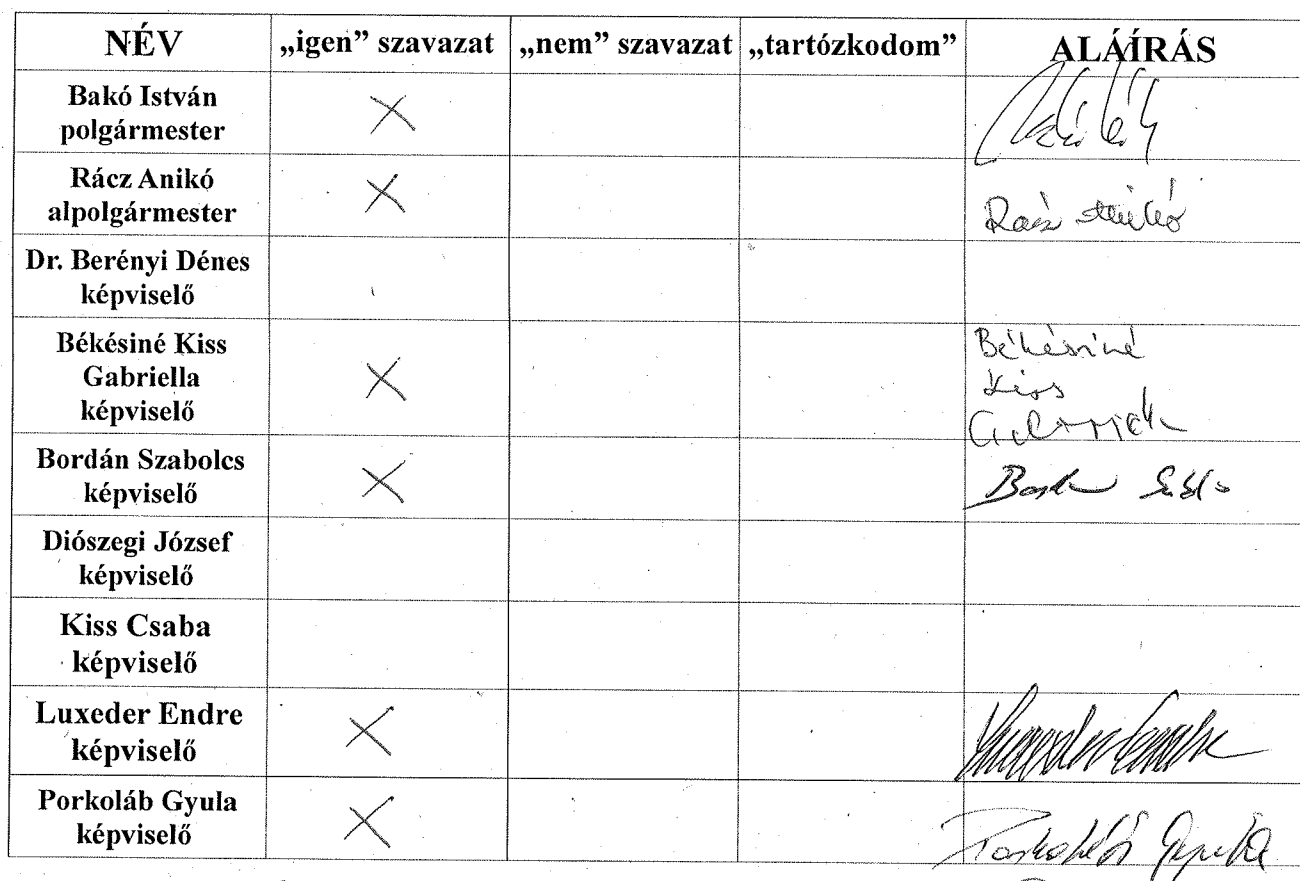 NÉV „igen” szavazat „nem” szavazat „tartózkodom” ALÁÍRÁS
Bakó István
polgármester
Rácz Anikó
alpolgármester
Rácz Anikó
Dr. Berényi Dénes
képviselő
Békésiné Kiss
Gabriella
képviselő
Békésiné
Kiss
Gabriella
Bordán Szabolcs
képviselő
Diószegi József
képviselő
Kiss Csaba
képviselő
Luxeder Endre
képviselő
Porkoláb Gyula
képviselő
Porkoláb Gyula